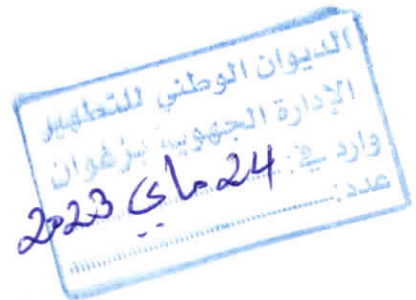 الديوان الوطني للتطهير
الإدارة الجهوية بزغوان
وارد في: 24 ماي 2023
عدد: